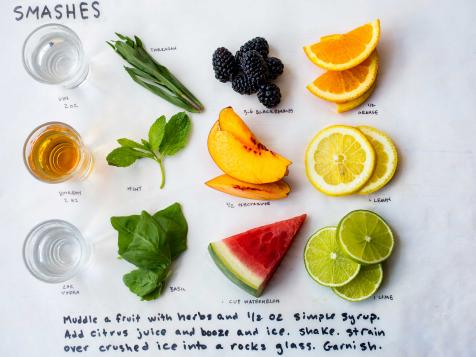 SMASHES
TARRAGON
GIN
2 OZ
5-6 BLACKBERRIES
1/2
ORANGE
BOURBON
2 OZ
MINT
1/2 NECTARINE
1 LEMON
2 OZ
VODKA
BASIL
1 CUP WATERMELON
1 LIME
Muddle a fruit with herbs and 1/2 oz simple syrup.
Add citrus juice and booze and ice. shake. strain
over crushed ice into a rocks glass. Garnish.